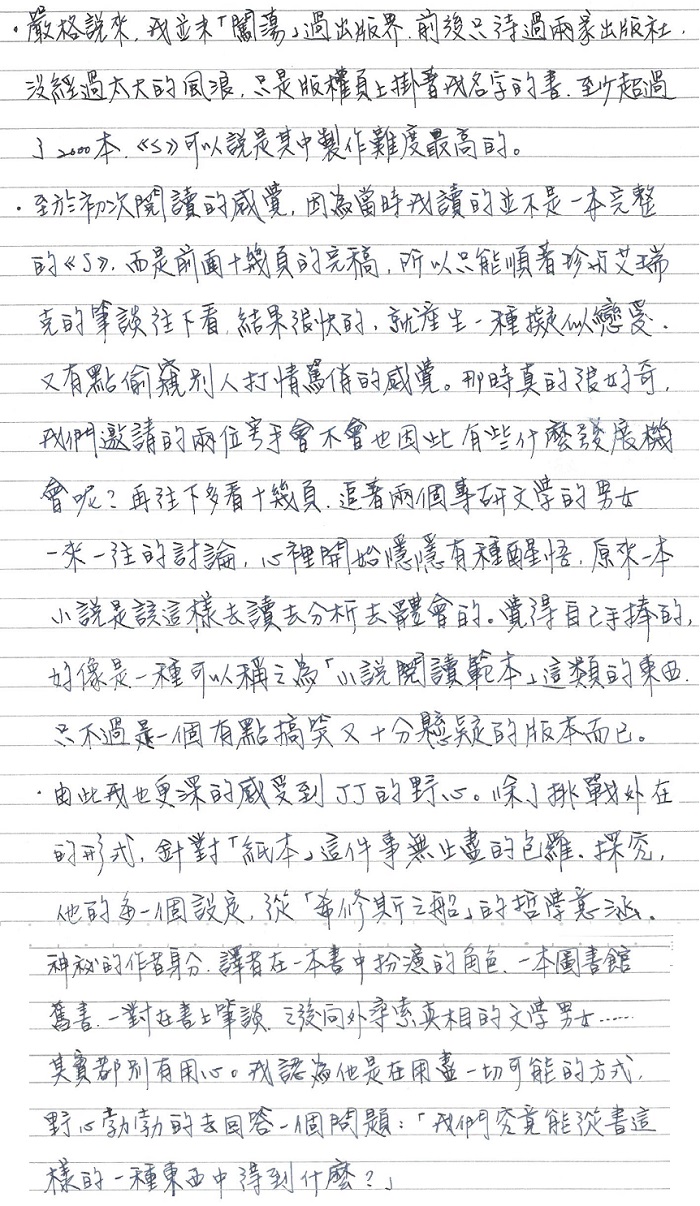 ・嚴格說來，我並未「闖蕩」過出版界，前後只待過兩家出版社，
沒經過太大的風浪，只是版權頁上掛著我名字的書，至少超過
了2000本，《S》可以說是其中製作難度最高的。
・至於初次閱讀的感覺，因為當時我讀的並不是一本完整
的《S》，而是前面十幾頁的完稿，所以只能順著珍和艾瑞
克的筆談往下看，結果很快的，就產生一種擬似戀愛、
又有點偷窺別人打情罵俏的感覺。那時真的很好奇，
我們邀請的兩位寫手會不會也因此有些什麼發展機
會呢？再往下多看十幾頁，追著兩個專研文學的男女
一來一往的討論，心裡開始隱隱有種醒悟，原來一本
小說是該這樣去讀去分析去體會的。覺得自己手捧的，
好像是一種可以稱之為「小說閱讀範本」這類的東西，
只不過是一個有點搞笑又十分懸疑的版本而已。
・由此我也更深的感受到JJ的野心。除了挑戰外在
的形式，針對「紙本」這件事無止盡的包羅、探究，
他的每一個設定，從「希修斯之船」的哲學意涵、
神祕的作者身分、譯者在一本書中扮演的角色、一本圖書館
舊書、一對在書上筆談、之後向外尋索真相的文學男女……
其實都別有用心。我認為他是在用盡一切可能的方式，
野心勃勃的去回答一個問題：「我們究竟能從書這
樣的一種東西中得到什麼？」